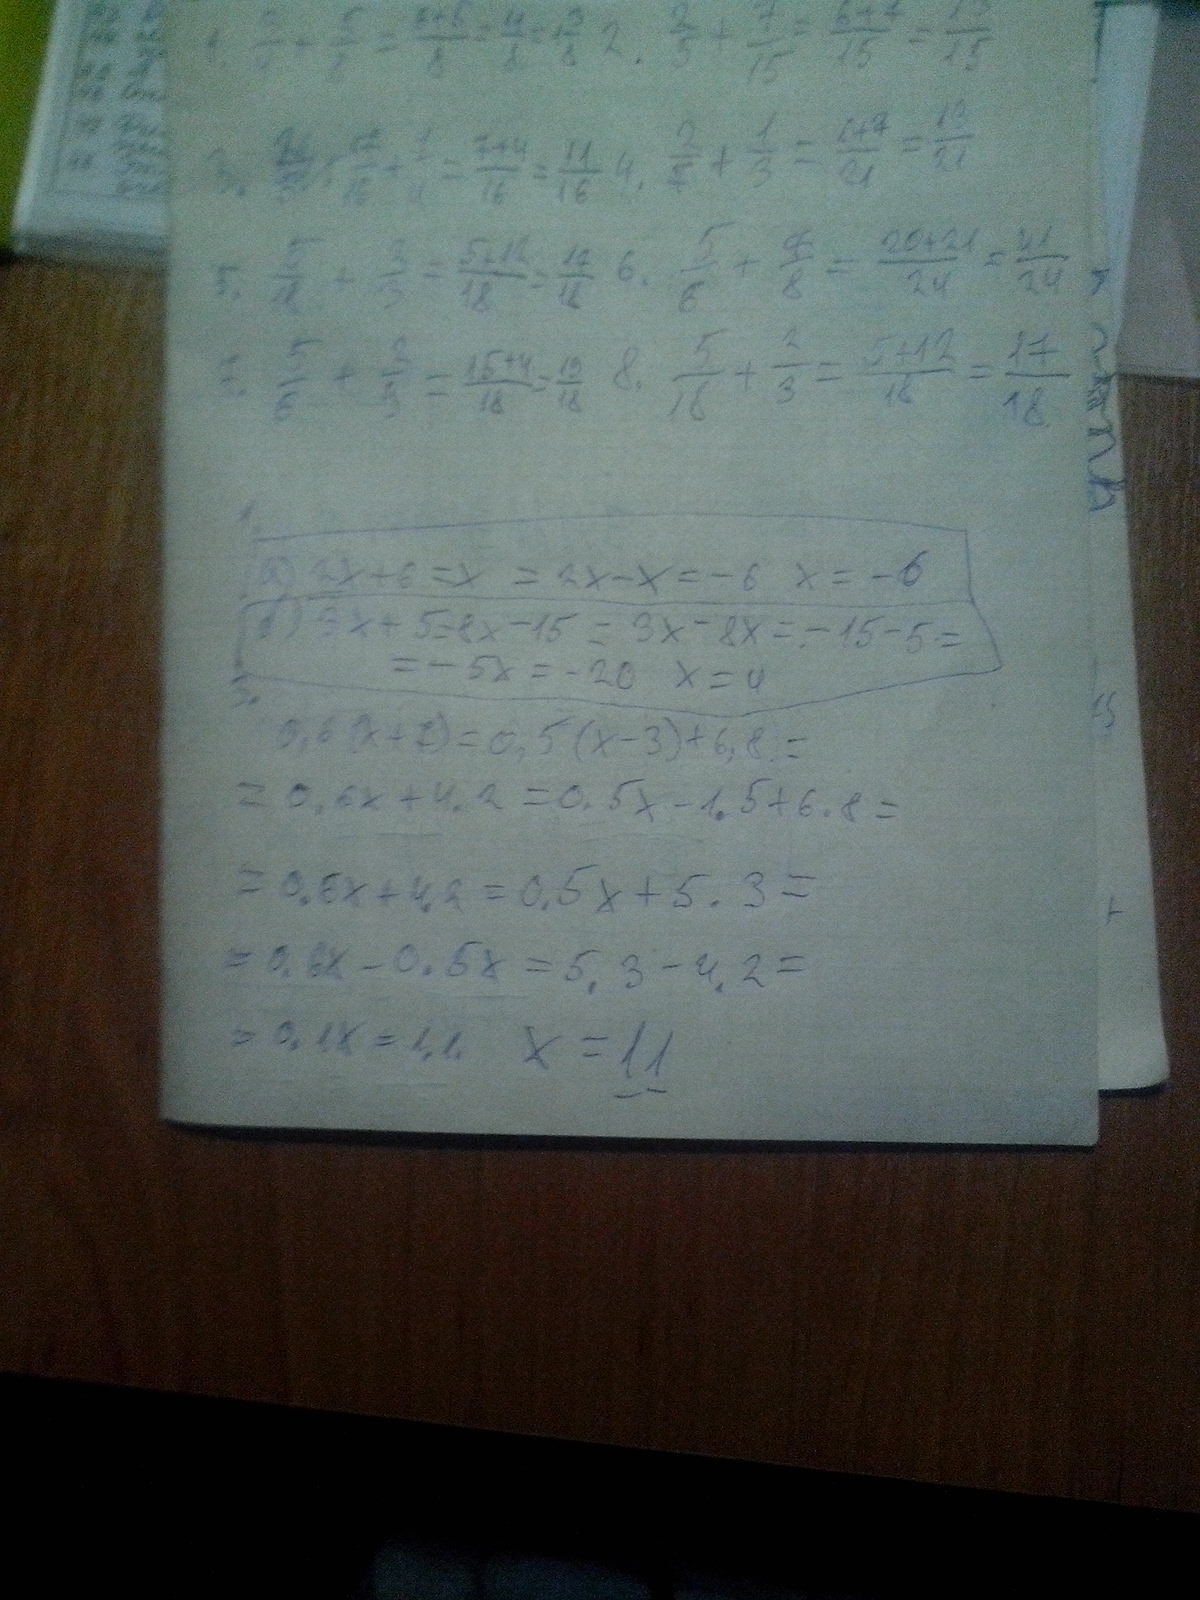 2. 2/5 + 7/15 = 6+7/15 = 13/15
7/16 + 1/4 = 7+4/16 = 11/16 4. 2/7 + 1/3 = 6+7/21 = 13/21
5. 5/18 + 2/3 = 5+12/18 = 17/18 6. 5/6 + 7/8 = 20+21/24 = 41/24
5/6 + 2/9 = 15+4/18 = 19/18 8. 5/18 + 2/3 = 5+12/18 = 17/18
1.
а) 2x+6=x = 2x-x=-6 x=-6
б) 3x+5=8x-15 = 3x-8x=-15-5=
=-5x=-20 x=4
3.
0,6(x+7)=0,5(x-3)+6,8=
=0.6x+4.2=0.5x-1.5+6.8=
=0.6x+4.2=0.5x+5.3=
=0.6x-0.5x=5.3-4.2=
=0.1x=1.1. x=11